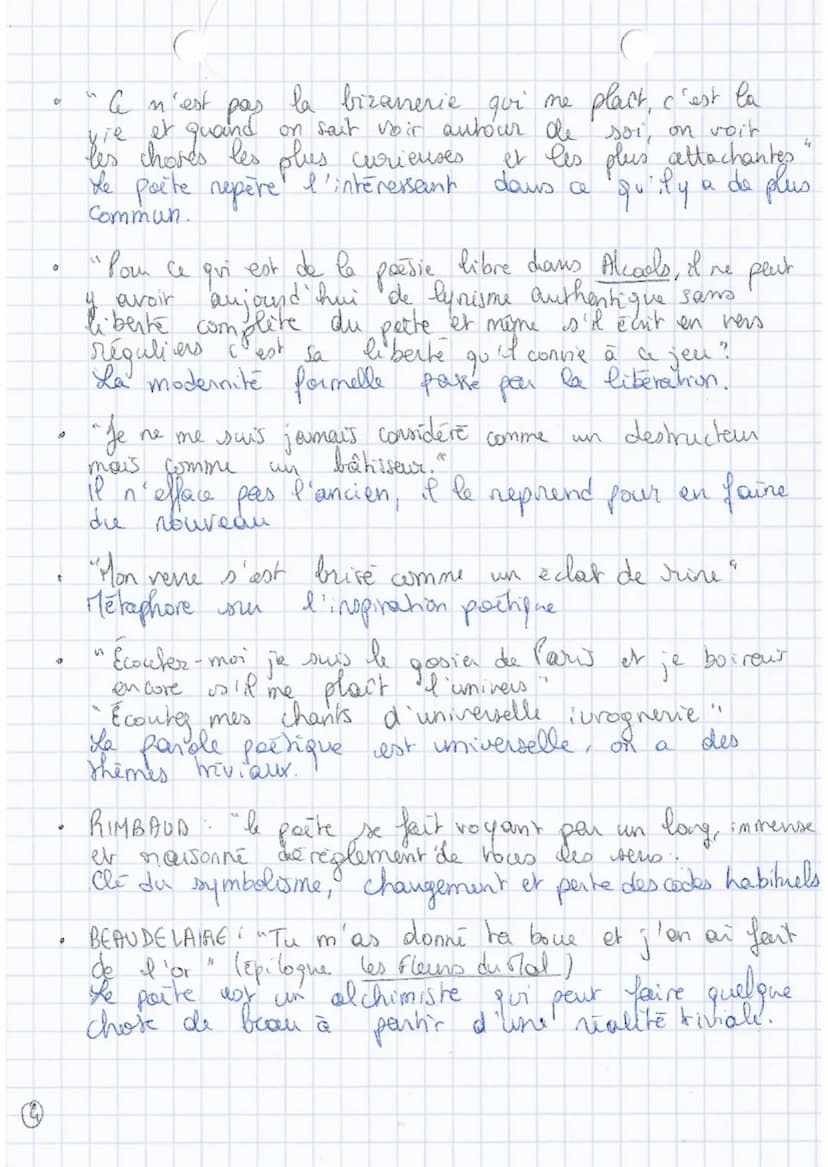 • "Ce n'est pas la bizarrerie qui me plaît, c'est la
vie et quand on sait voir autour de soi, on voit
les choses les plus curieuses et les plus attachantes"
Le poète repère l'intéressant dans ce qu'il y a de plus
commun.
• "Pour ce qui est de la poésie libre dans Alcools, il ne peut
y avoir aujourd'hui de lyrisme authentique sans
liberté complète du poète et même s'il écrit en vers
réguliers c'est sa liberté qu'il convie à ce jeu"
La modernité formelle passe par la libération.
• "Je ne me suis jamais considéré comme un destructeur
mais comme un bâtisseur."
Il n'efface pas l'ancien, il le reprend pour en faire
du nouveau
• "Mon verre s'est brisé comme un éclat de rire"
Métaphore sur l'inspiration poétique
• "Écoutez-moi je suis le gosier de Paris et je boirais
encore s'il me plaît l'univers"
"Écoutez mes chants d'universelle ivrognerie"
La parole poétique est universelle, on a des
thèmes triviaux.
• RIMBAUD : "le poète se fait voyant par un long, immense
et raisonné dérèglement de tous les sens".
Clé du symbolisme, changement et perte des codes habituels
• BEAUDELAIRE : "Tu m'as donné ta boue et j'en ai fait
de l'or" (épilogue Les Fleurs du Mal)
Le poète est un alchimiste qui peut faire quelque
chose de beau à partir d'une réalité triviale.